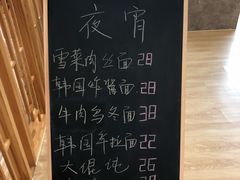 夜宵
雪菜肉丝面 28
韩国炸酱面 28
牛肉乌冬面 38
韩国辛拉面 22
大馄饨 26